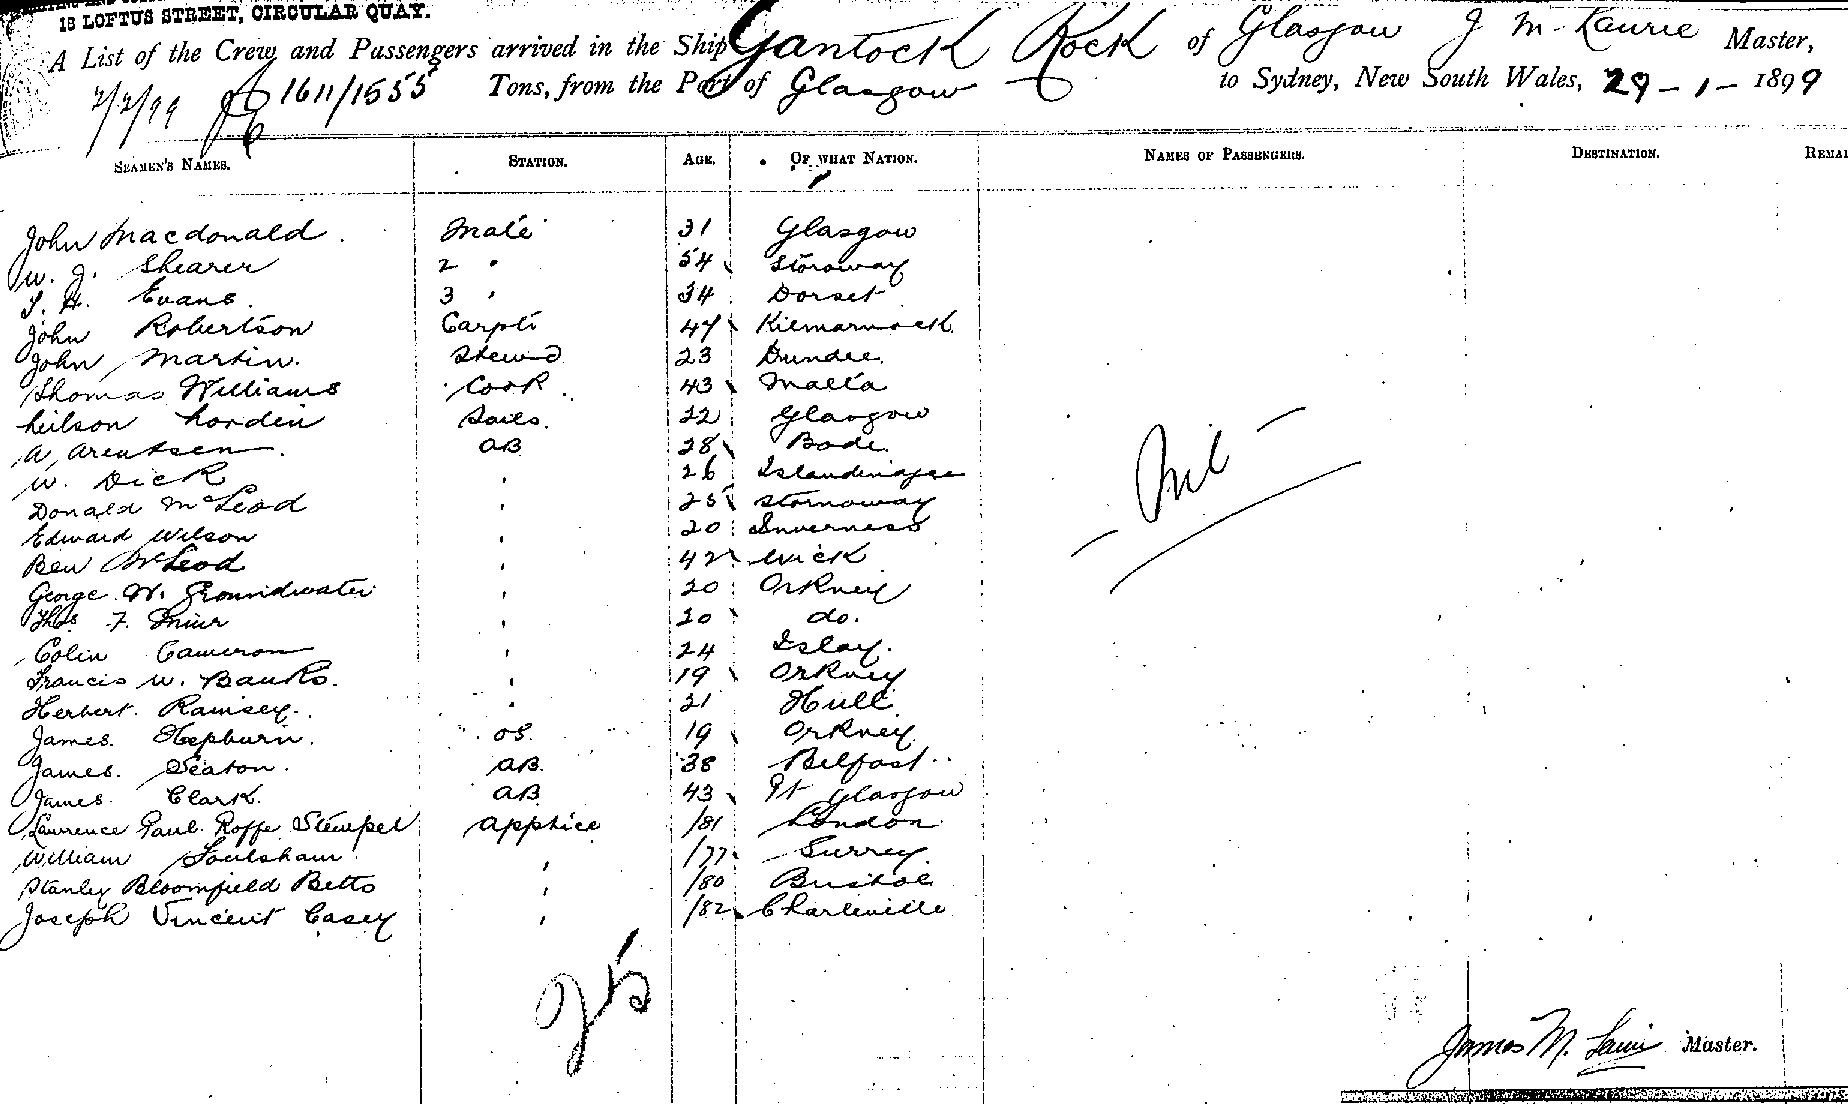 18 LOFTUS STREET, CIRCULAR QUAY.
A List of the Crew and Passengers arrived in the Ship Gantock Rock of Glasgow J McLaurie Master,
2/2/99 1611/1555 Tons, from the Port of Glasgow to Sydney, New South Wales, 29-1-1899
SEAMEN'S NAMES. STATION. AGE. OF WHAT NATION. NAMES OF PASSENGERS. DESTINATION.
John Macdonald Mate 31 Glasgow
W. J. Shearer 2 " 54 Stornoway
T. H. Evans 3 " 34 Dorset
John Robertson Carptr 47 Kilmarnock
John Martin Stewd 23 Dundee
Thomas Williams Cook 43 Malta
Neilson Sails 22 Glasgow
A. Arentsen AB 28 Bode
W. Dick " 26 Islandmagee
Donald McLeod " 25 Stornoway
Edward Wilson " 20 Inverness
Ben McLeod " 42 Wick
George W. Groundwater " 20 Orkney
Thos F. Muir " 20 do.
Colin Cameron " 24 Islay.
Francis W. Banks. " 19 Orkney
Herbert Ramsey " 21 Hull
James Hepburn OS 19 Orkney
James Seaton AB 38 Belfast
James Clark AB 43 Pt Glasgow
Lawrence Paul Roffe Stempel Apptice /81 London
William Foulsham " /77 Surrey
Stanley Bloomfield Betts " /80 Bristol
Joseph Vincent Casey " /82 Charleville
Nil
25
James M. Master.